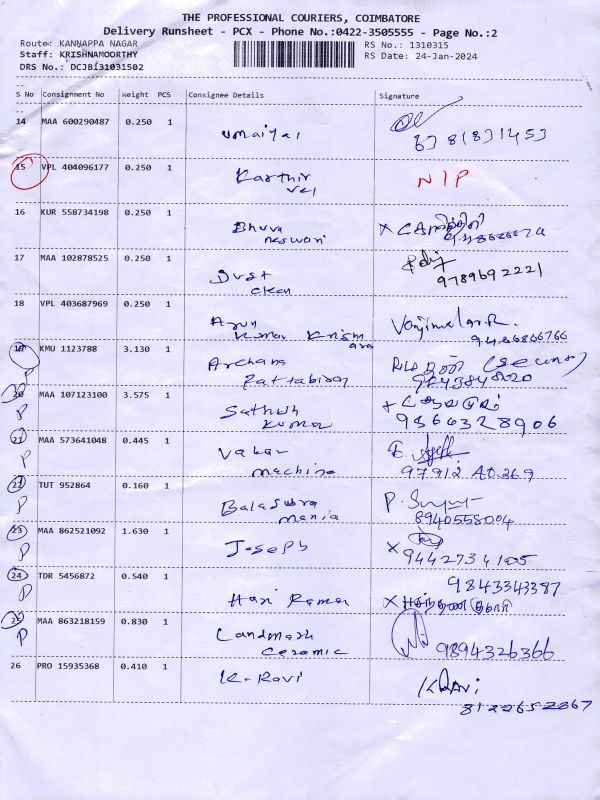 THE PROFESSIONAL COURIERS, COIMBATORE
Delivery Runsheet - PCX - Phone No.:0422-3505555 - Page No.:2
Route: KANNAPPA NAGAR RS No.: 1310315
Staff: KRISHNAMOORTHY RS Date: 24-Jan-2024
DRS No.: DCJBI31031502
S No Consignment No Weight PCS Consignee Details Signature
14 MAA 600290487 0.250 1
umaiyal
15 VPL 404096177 0.250 1
Karthir NIP
vel
16 KUR 558734198 0.250 1
Bhuva
neswari
17 MAA 102878525 0.250 1
Dust 9789692221
clean
18 VPL 403687969 0.250 1
Arun
Kumar Krishn
19 KMU 1123788 3.130 1
Archana
P Pattabiran
20 MAA 107123100 3.575 1
Sathish
P Kumar 9366328906
21 MAA 573641048 0.445 1
P machine
22 TUT 952864 0.160 1
Balasubra
P mania 8940558004
23 MAA 862521092 1.630 1
P Joseph
24 TDR 5456872 0.540 1 9843343387
P Hari Raman
25 MAA 863218159 0.830 1
Landmark
P ceramic 9894326366
26 PRO 15935368 0.410 1
K-Ravi K Ravi
8122652867